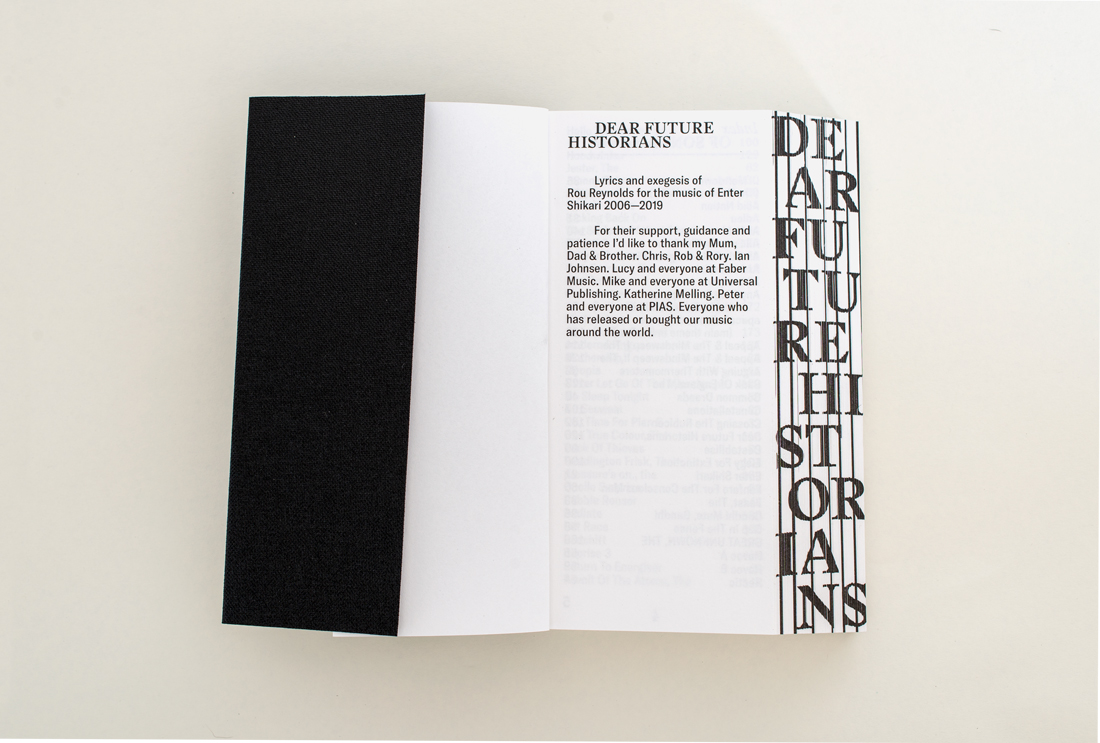 DEAR FUTURE
HISTORIANS
Lyrics and exegesis of
Rou Reynolds for the music of Enter
Shikari 2006—2019
For their support, guidance and
patience I'd like to thank my Mum,
Dad & Brother. Chris, Rob & Rory. Ian
Johnsen. Lucy and everyone at Faber
Music. Mike and everyone at Universal
Publishing. Katherine Melling. Peter
and everyone at PIAS. Everyone who
has released or bought our music
around the world.
DE
AR
FU
TU
RE
HI
ST
OR
IA
NS